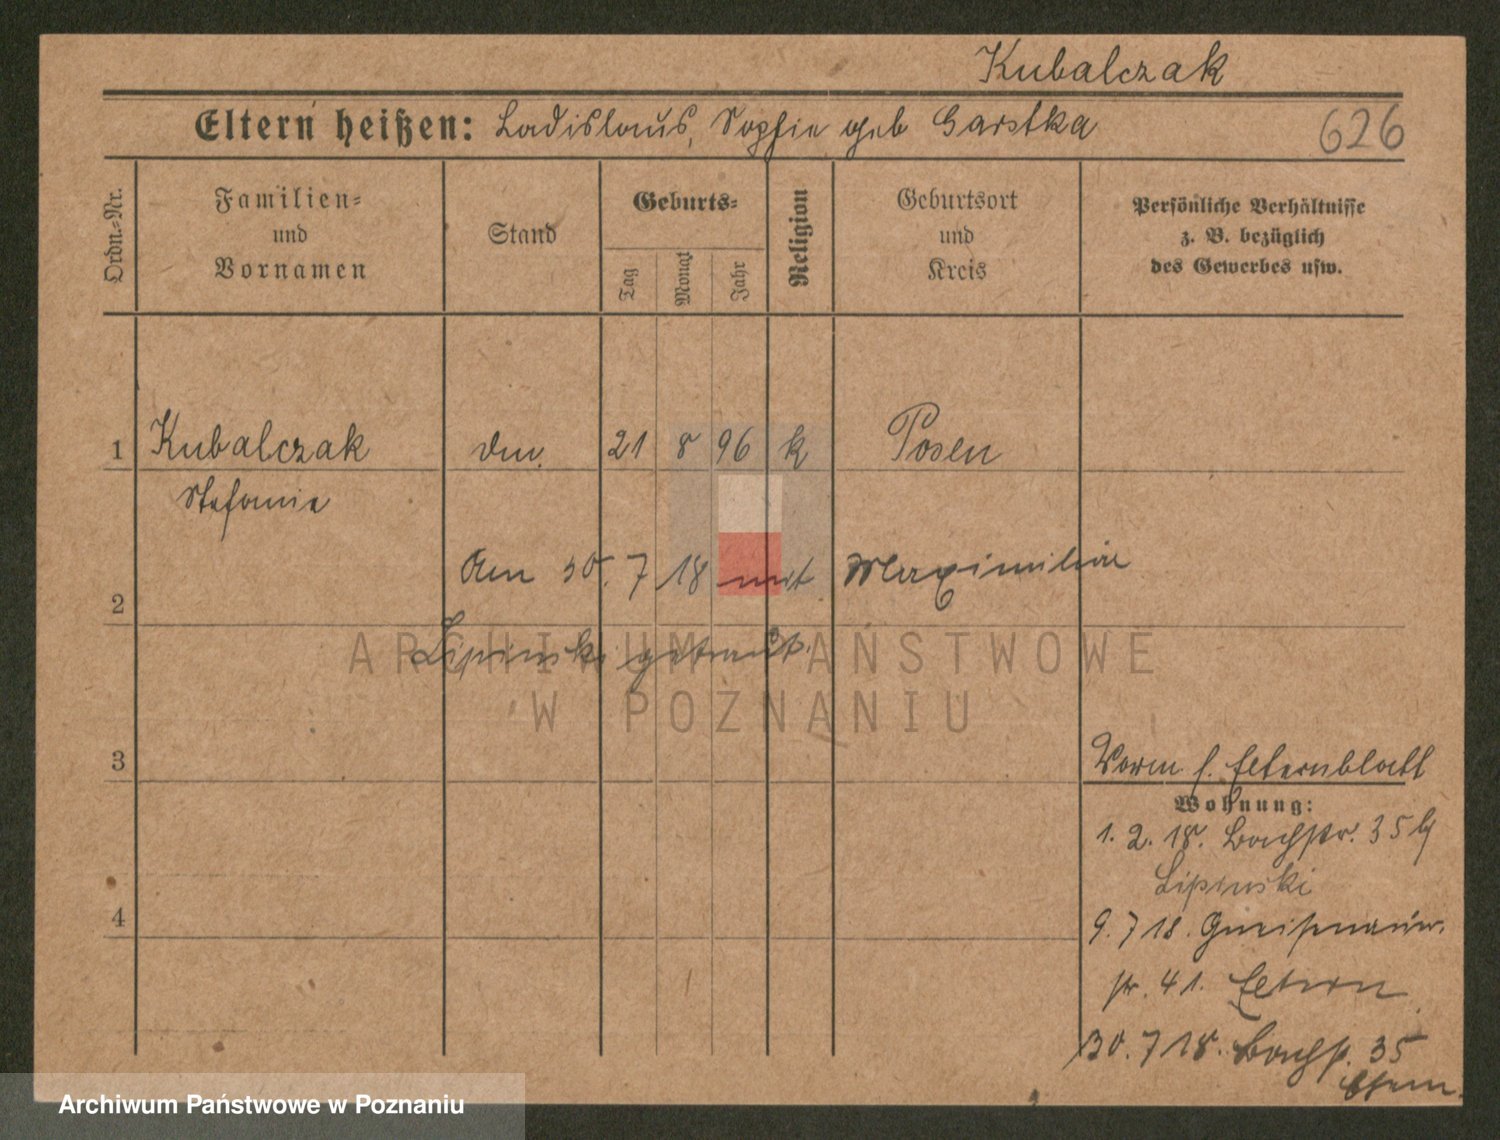 Kubalczak
Eltern heißen: Ladislaus, Sophie geb Garstka
626
Ordn.-Nr.
Familien-
und
Vornamen
Stand
Geburts-
Tag
Monat
Jahr
Religion
Geburtsort
und
Kreis
Persönliche Verhältnisse
z. B. bezüglich
des Gewerbes usw.
1 Kubalczak 21 8 96 k Posen
Stefanie
Am 30. 7 18 mit Maximilian
2
Lipinski getraut.
ARCHIWUM PAŃSTWOWE
W POZNANIU
3
Vorm s. Elternblatt
Wohnung:
1. 2. 18. Bachstr. 35 b/
Lipinski
4
9. 7 18. Gneisenauer-
str. 41. Eltern
30. 7 18. Bachst. 35
Ehem.
Archiwum Państwowe w Poznaniu